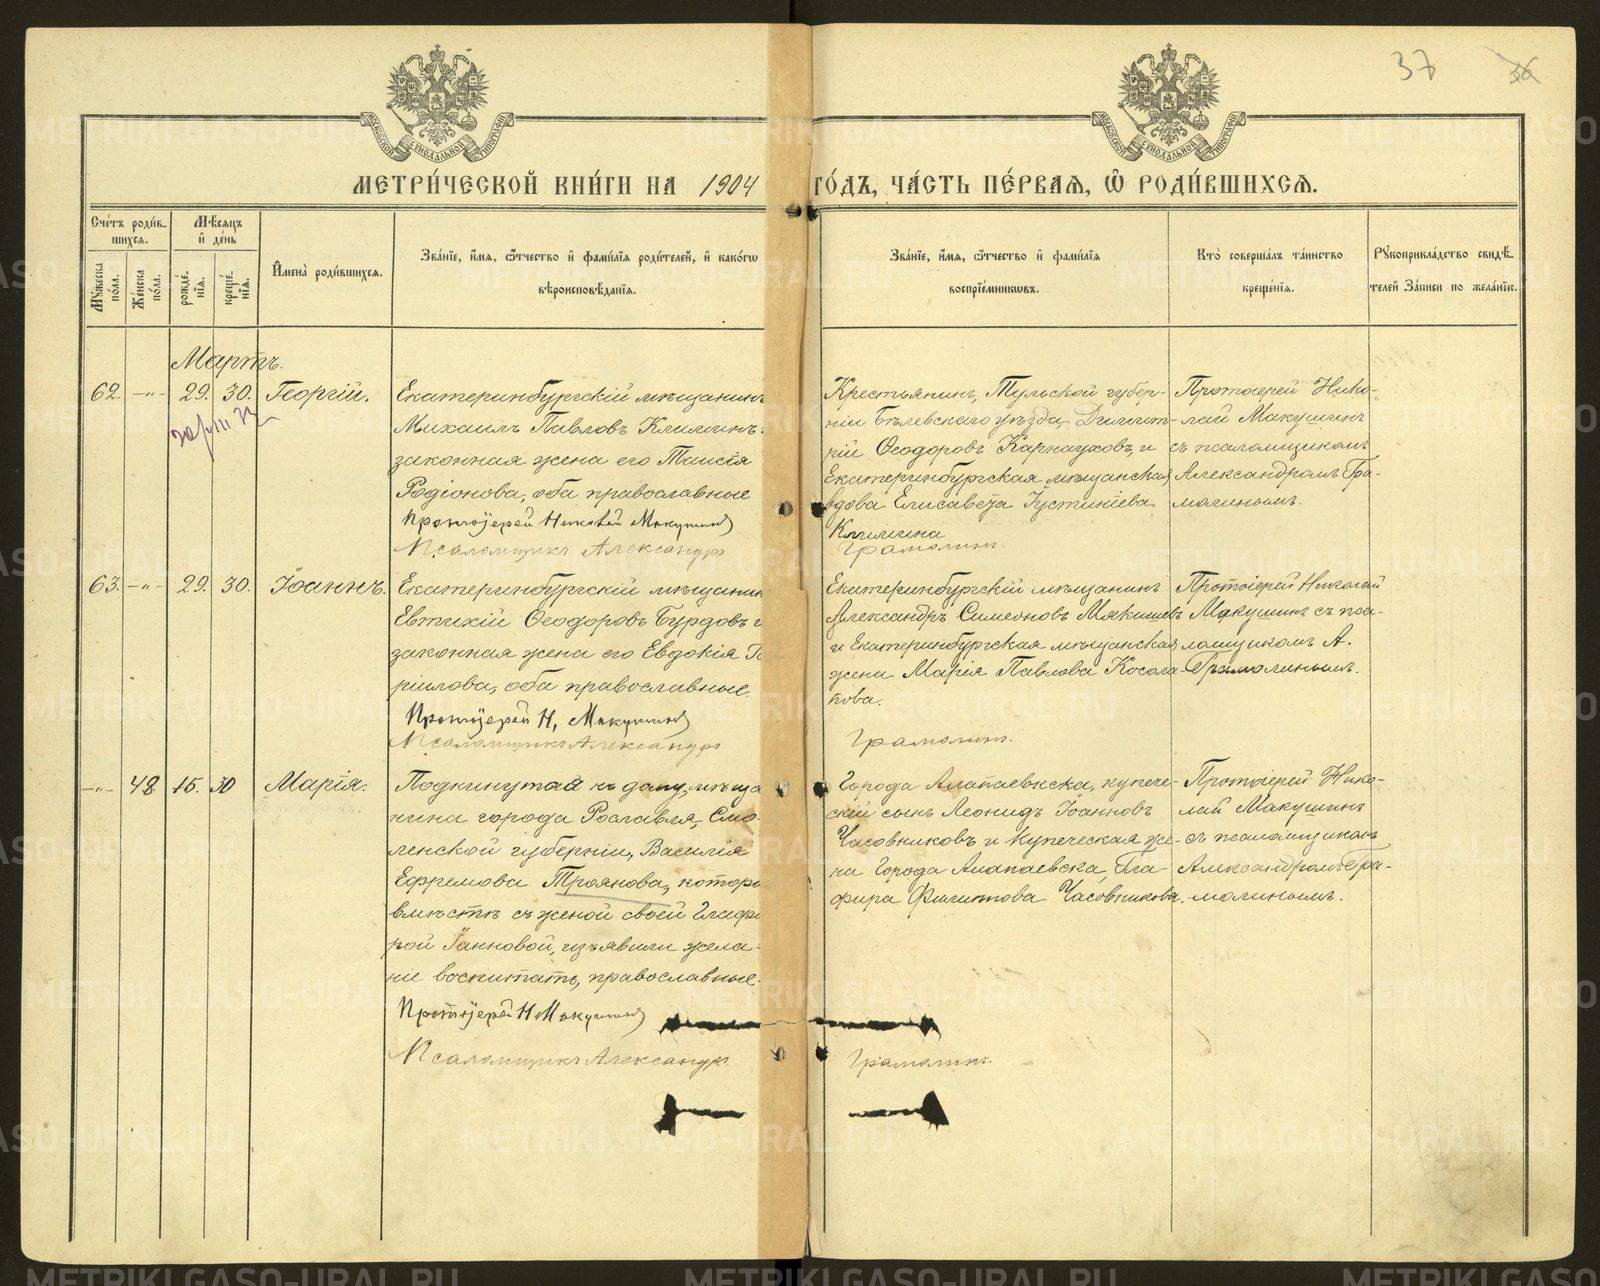 37 36
МОСКОВСКОЙ СѴНОДАЛЬНОЙ ТИПОГРАФІИ
МОСКОВСКОЙ СѴНОДАЛЬНОЙ ТИПОГРАФІИ
МЕТРИ́ЧЕСКОЙ КНИ́ГИ НА 1904 ГО́ДЪ, ЧА́СТЬ ПЕ́РВАЯ, Ѽ РОДИ́ВШИХСЯ.
Сче́тъ роди́в-
шихся.
Му́жеска по́ла.
Же́нска по́ла.
Мѣ́сяцъ
и҆ де́нь
рожде́-
нїя.
креще́-
нїя.
И҆мена̀ роди́вшихся.
Зва́нїе, и҆́мя, ѻ҆́тчество и҆ фами́лїя роди́телей, и҆ како́гѡ
вѣроисповѣ́данїя.
Зва́нїе, и҆́мя, ѻ҆́тчество и҆ фами́лїя
воспрїе́мникѡвъ.
Кто̀ соверша́лъ та́инство
креще́нїя.
Рꙋкоприкла́дство свидѣ́-
телей За́писи по жела́нїю.
Мартъ.
62. -"- 29. 30. Георгій.
Екатеринбургскій мѣщанинъ
Михаилъ Павловъ Климинъ
законная жена его Таисія
Родіонова, оба православные
Протоіерей Николай Макушинъ
Псаломщикъ Александръ
Крестьянинъ, Тульской губер-
ніи Бѣлевскаго уѣзда, Димит-
рій Ѳеодоровъ Карнауховъ, и
Екатеринбургская мѣщанская
вдова Елисавета Іустиніева
Климина
Грамолинъ.
Протоіерей Нико-
лай Макушинъ
съ псаломщикомъ
Александромъ Гра-
молинымъ.
63. -"- 29. 30. Іоаннъ.
Екатеринбургскій мѣщанин
Евтихій Ѳеодоровъ Бурдовъ и
законная жена его Евдокія Га
ріилова, оба православные.
Протоіерей Н. Макушинъ
Псаломщикъ Александръ
Екатеринбургскій мѣщанинъ
Александръ Симеоновъ Мякишевъ
и Екатеринбургская мѣщанская
жена Марія Павлова Косола
пова.
Грамолинъ.
Протоіерей Николай
Макушинъ съ пса-
ломщикомъ А.
Грамолинымъ.
-"- 48 15. 30 Марія.
Подкинутая къ дому, мѣща
нина города Рославля, Смо-
ленской губерніи, Василія
Ефремова Троянова, котор
вмѣстѣ съ женой своей Глафи
рой Іанновой, изъявили жела-
ние воспитать, православные.
Протоіерей Н Макушинъ
Псаломщикъ Александръ
Города Алапаевска, купече-
скій сынъ Леонидъ Іоанновъ
Часовниковъ и купеческая же-
на города Алапаевска, Гла-
фира Филиппова Часовникова.
Грамолинъ.
Протоіерей Нико-
лай Макушинъ
съ псаломщикомъ
Александромъ Гра-
молинымъ.
METRIKI.GASO-URAL.RU